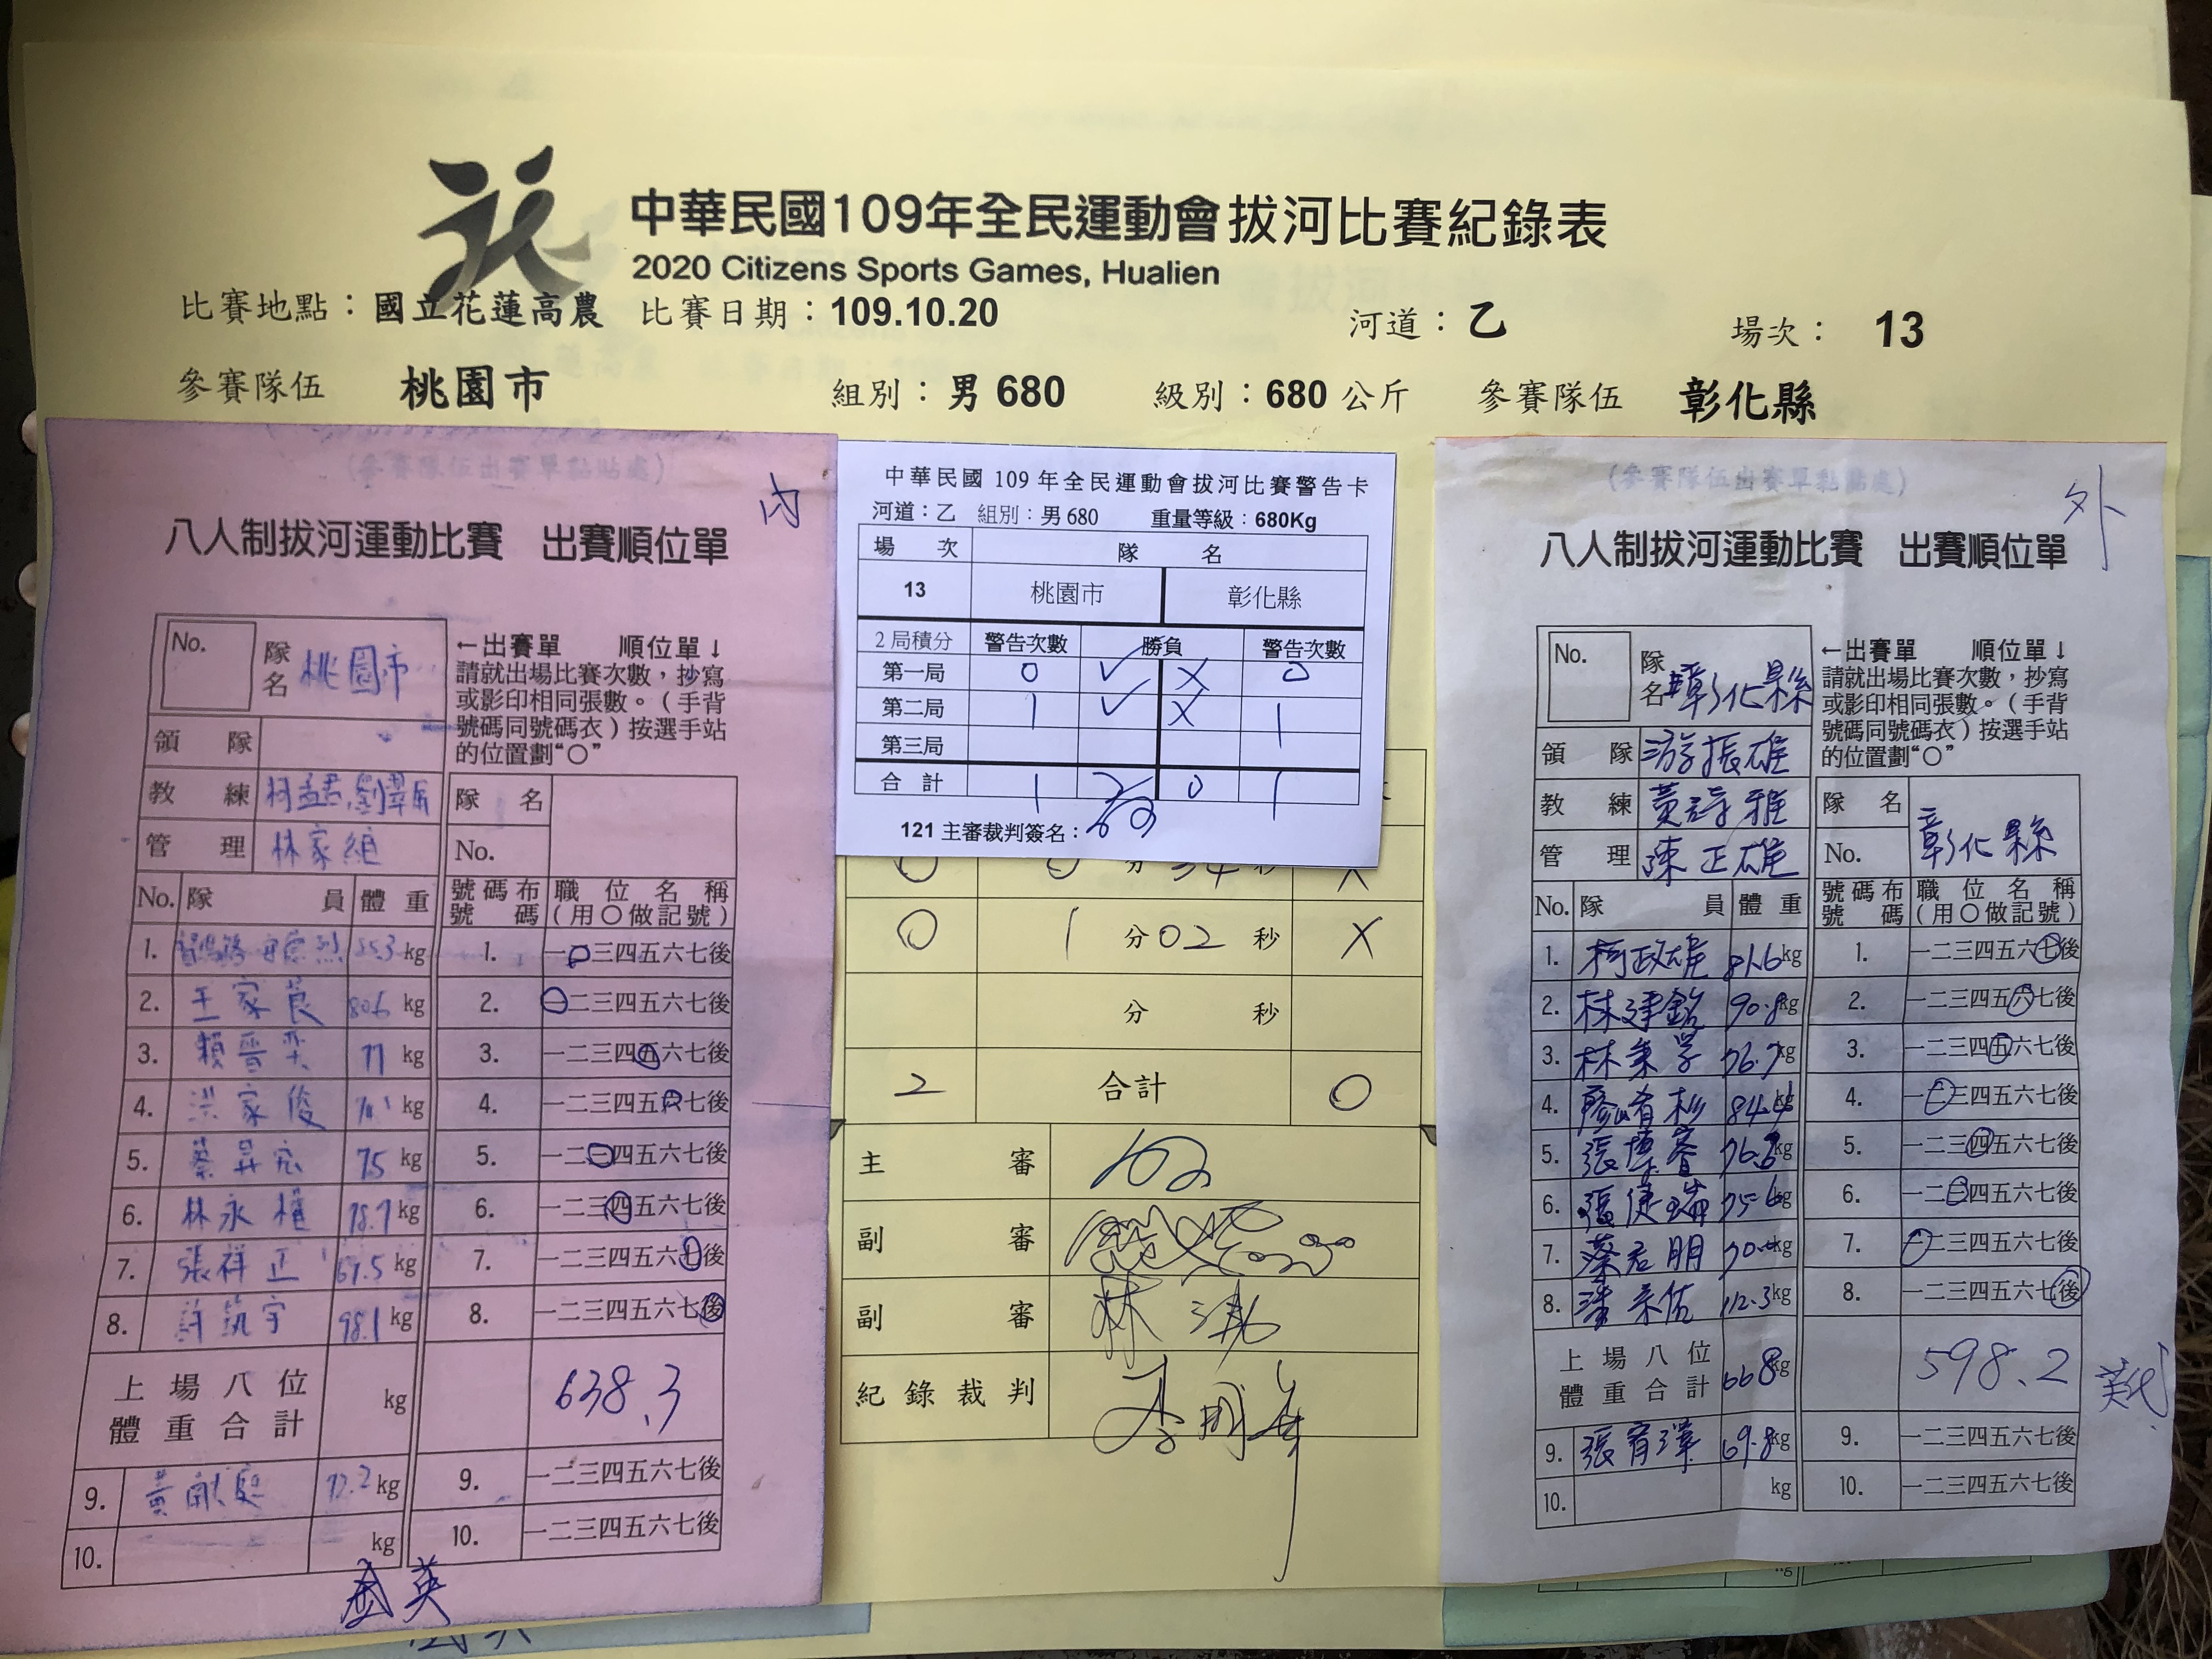 中華民國109年全民運動會拔河比賽紀錄表
2020 Citizens Sports Games, Hualien
比賽地點：國立花蓮高農 比賽日期：109.10.20 河道：乙 場次： 13
參賽隊伍 桃園市 組別：男 680 級別：680 公斤 參賽隊伍 彰化縣
(參賽隊伍出賽單黏貼處)
內
八人制拔河運動比賽 出賽順位單
No. 隊名 桃園市
←出賽單 順位單↓
請就出場比賽次數，抄寫
或影印相同張數。（手背
號碼同號碼衣）按選手站
的位置劃“○”
領 隊
教 練
管 理 林家維
隊 名
No.
No. 隊 員 體 重 號碼布號碼 職位名稱（用○做記號）
1. kg 1. 一二三四五六七後
2. 王家良 80.6 kg 2. 一二三四五六七後
3. 賴晉奕 77 kg 3. 一二三四五六七後
4. 洪家俊 kg 4. 一二三四五六七後
5. 蔡昇宏 75 kg 5. 一二三四五六七後
6. 林永 78.7 kg 6. 一二三四五六七後
7. 張祥正 kg 7. 一二三四五六七後
8. 許凱宇 98.1 kg 8. 一二三四五六七後
上場八位體重合計 kg 638.3
9. 黃 kg 9. 一二三四五六七後
10. kg 10. 一二三四五六七後
中華民國 109 年全民運動會拔河比賽警告卡
河道：乙 組別：男 680 重量等級：680Kg
場 次 隊 名
13 桃園市 彰化縣
2局積分 警告次數 勝負 警告次數
第一局 0 ✓ X 0
第二局 1 ✓ X 1
第三局
合 計 1 2 0 1
121 主審裁判簽名：
0 0 分 34 秒 X
0 1 分 02 秒 X
分 秒
2 合計 0
主 審
副 審
副 審 林
紀錄裁判
(參賽隊伍出賽單黏貼處)
外
八人制拔河運動比賽 出賽順位單
No. 隊名 彰化縣
←出賽單 順位單↓
請就出場比賽次數，抄寫
或影印相同張數。（手背
號碼同號碼衣）按選手站
的位置劃“○”
領 隊 游振雄
教 練 黃詩雅
管 理 陳正雄
隊 名 彰化縣
No.
No. 隊 員 體 重 號碼布號碼 職位名稱（用○做記號）
1. 柯政雄 81.6 kg 1. 一二三四五六七後
2. 林建銘 90.8 kg 2. 一二三四五六七後
3. 林秉學 76.7 kg 3. 一二三四五六七後
4. 廖脩杉 84.4 kg 4. 一二三四五六七後
5. 張博睿 kg 5. 一二三四五六七後
6. 張健瑞 75.6 kg 6. 一二三四五六七後
7. 蔡君朋 kg 7. 一二三四五六七後
8. 112.3 kg 8. 一二三四五六七後
上場八位體重合計 668 kg 598.2
9. 張宥澤 69.8 kg 9. 一二三四五六七後
10. kg 10. 一二三四五六七後